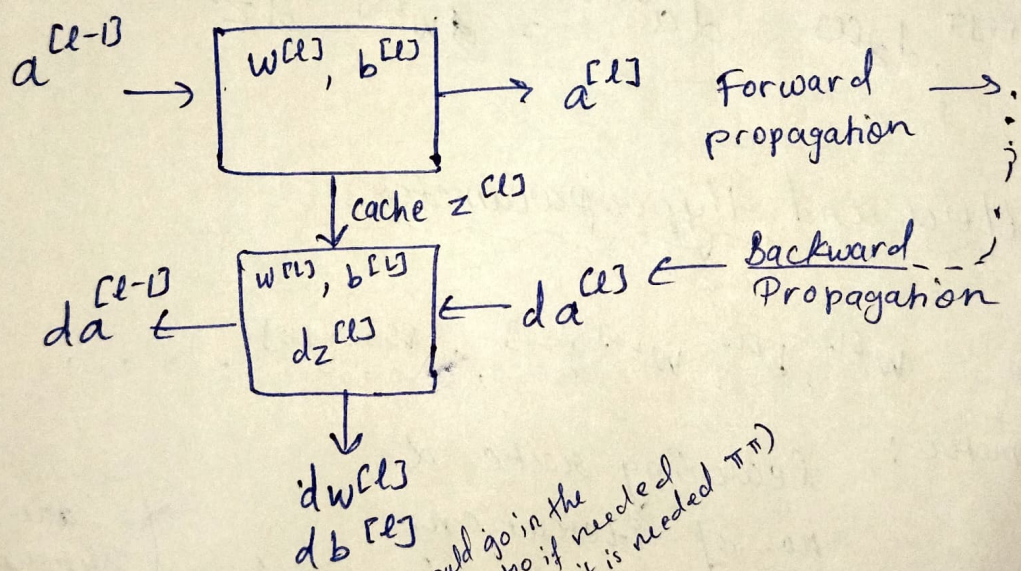 a^[l-1]
w^[l], b^[l]
a^[l]
Forward
propagation
cache z^[l]
da^[l-1]
w^[l], b^[l]
dz^[l]
da^[l]
Backward
Propagation
dw^[l]
db^[l]
go in the
if needed
is needed ππ)